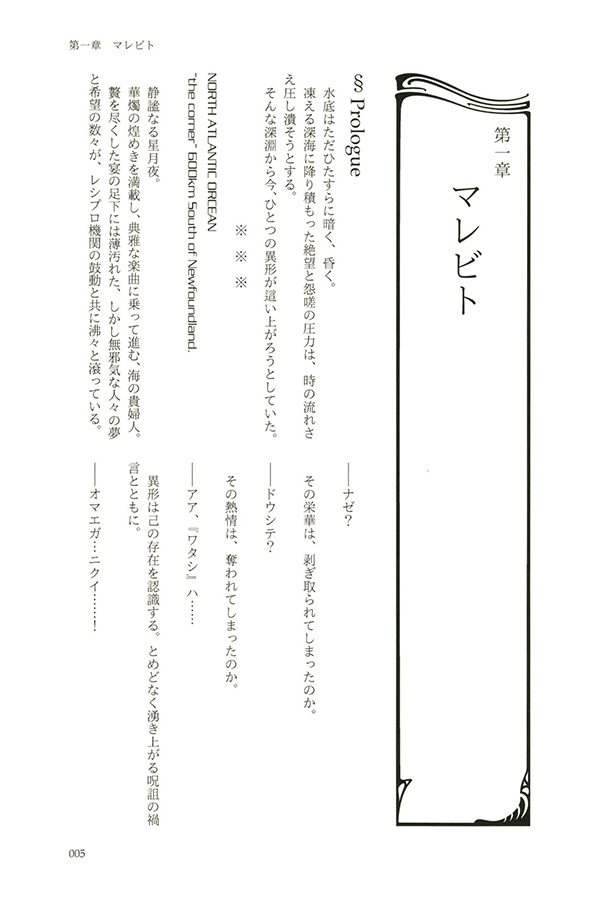 第一章　マレビト
第一章
マレビト
§ Prologue
水底はただひたすらに暗く、昏く。
凍える深海に降り積もった絶望と怨嗟の圧力は、時の流れさ
え圧し潰そうとする。
そんな深淵から今、ひとつの異形が這い上がろうとしていた。
※　※　※
NORTH ATLANTIC ORCEAN
"the corner" 600km South of Newfoundland.
静謐なる星月夜。
華燭の煌めきを満載し、典雅な楽曲に乗って進む、海の貴婦人。
贅を尽くした宴の足下には薄汚れた、しかし無邪気な人々の夢
と希望の数々が、レシプロ機関の鼓動と共に沸々と滾っている。
――ナゼ？
その栄華は、剥ぎ取られてしまったのか。
――ドウシテ？
その熱情は、奪われてしまったのか。
――アア、『ワタシ』ハ……
異形は己の存在を認識する。とめどなく湧き上がる呪詛の禍
言とともに。
――オマエガ…ニクイ……！
005